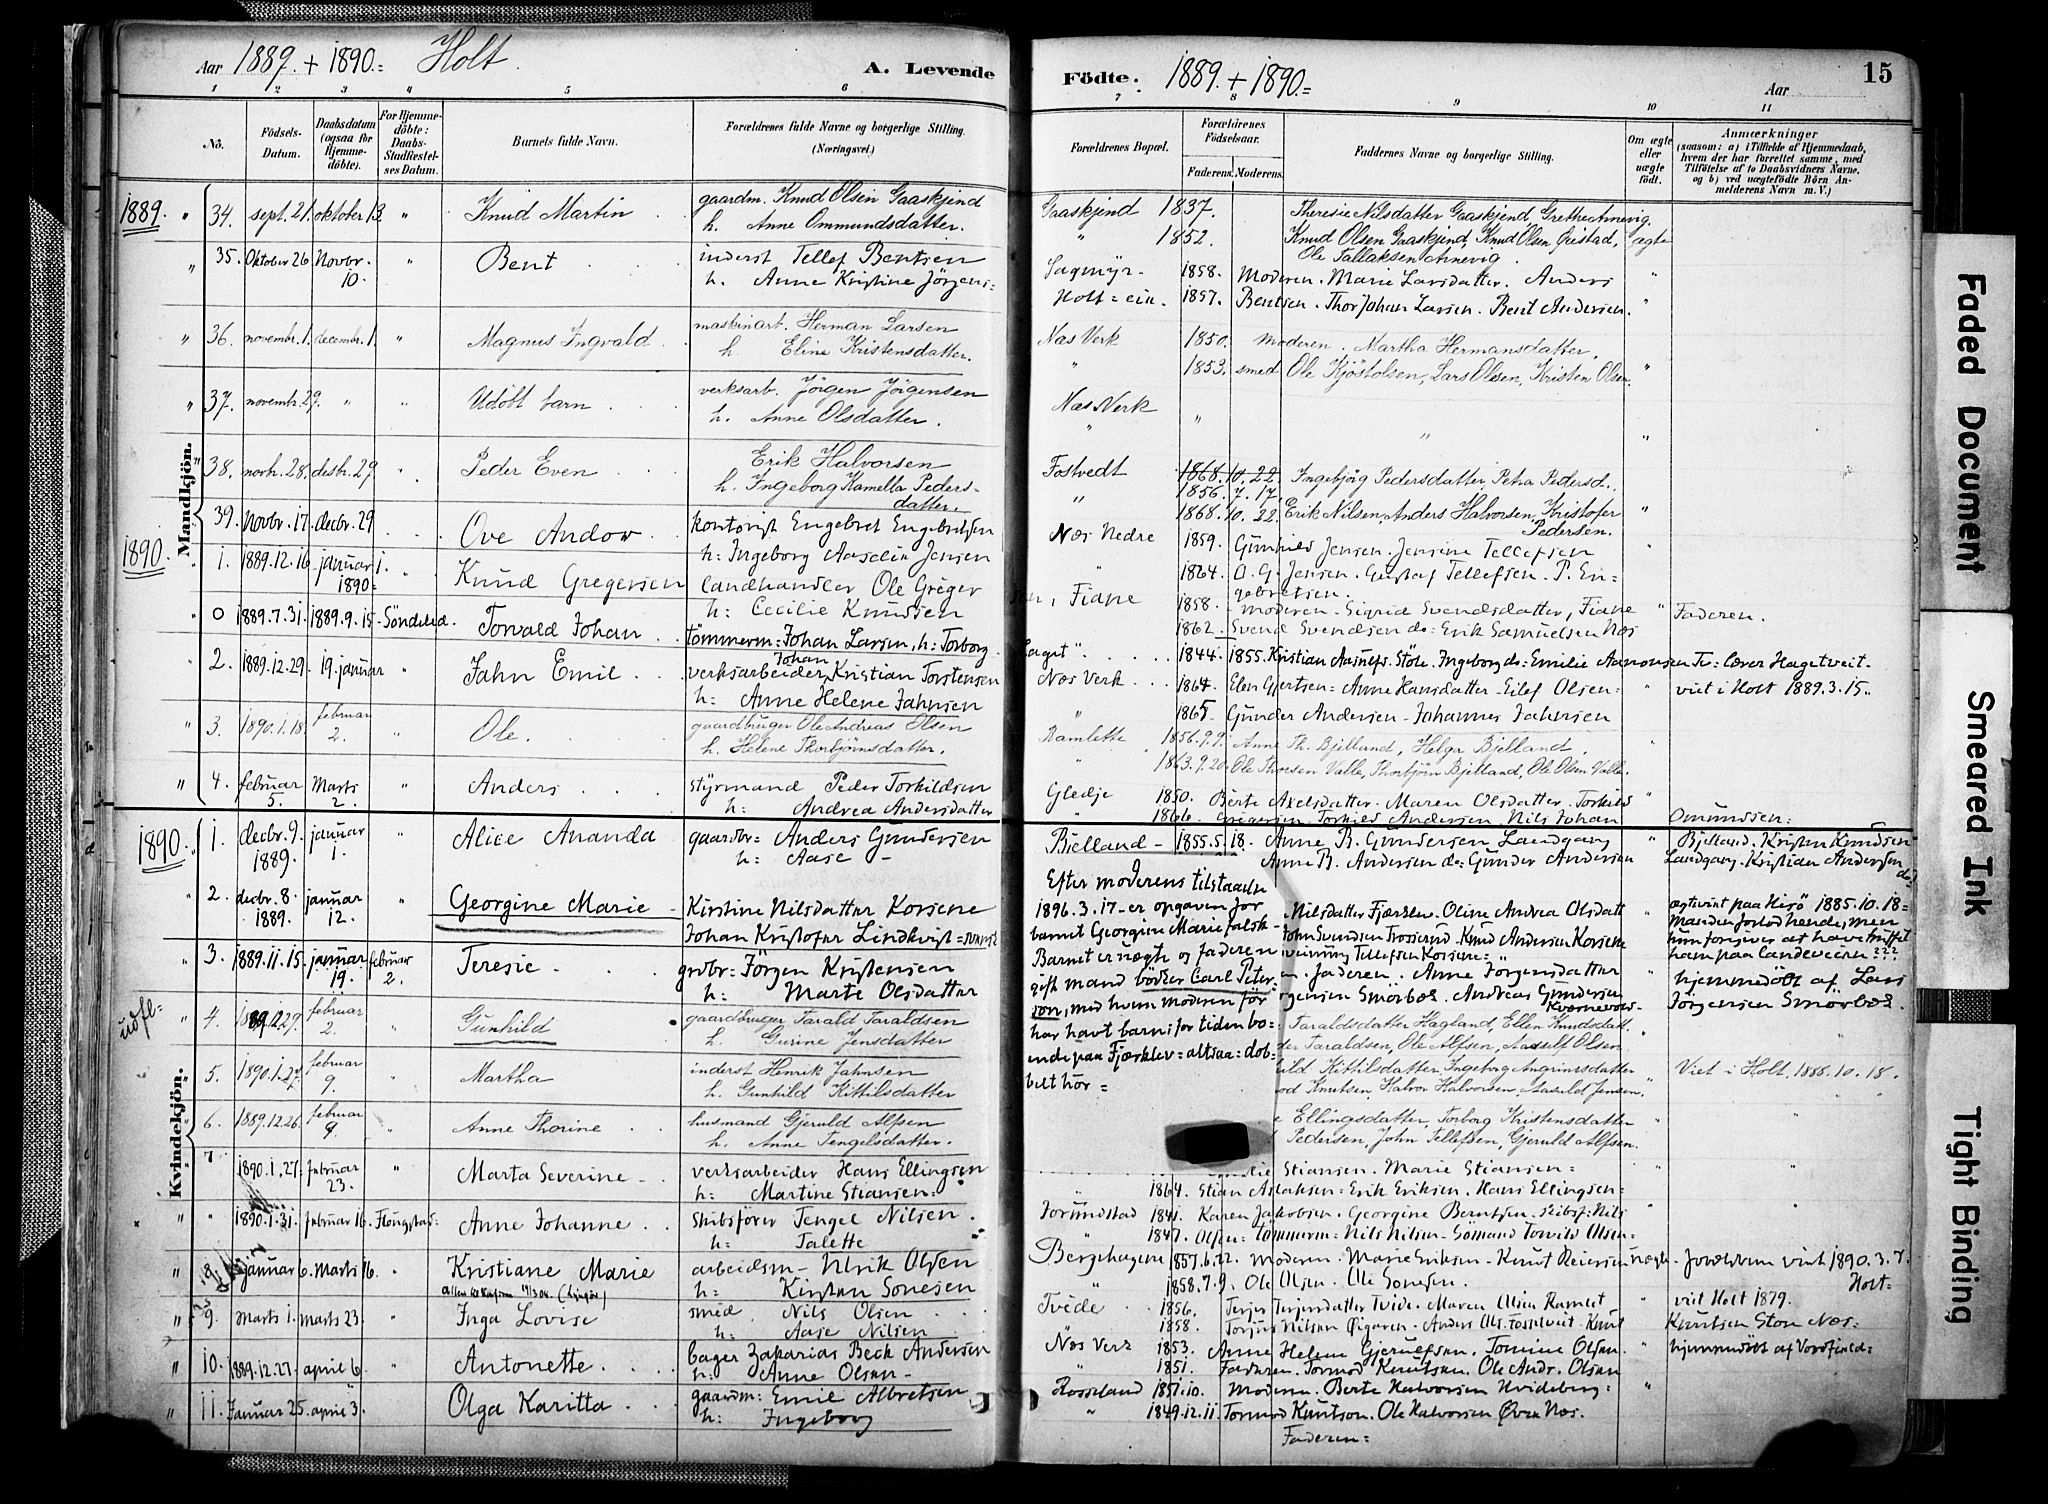 Aar 1889 + 1890 = Holt. A. Levende
1 2 3 4 5 6
No. Födsels-Datum. Daabsdatum (ogsaa for Hjemmedöbte). For Hjemmedöbte: Daabs-Stadfæstelses Datum. Barnets fulde Navn. Forældrenes fulde Navne og borgerlige Stilling. (Næringsvei.)
1889. " 34. sept. 21. oktober 13 " Knud Martin gaardm. Knud Olsen Gaaskjend
h. Anne Ommundsdatter.
" 35. Oktober 26 Novbr. 10. " Bent inderst Tellef Bentsen
h. Anne Kristine Jörgens=
" 36. novembr. 1. decembr. 1. " Magnus Ingvald maskinarb. Herman Larsen
h. Eline Kristensdatter.
" 37. novembr. 29. " " Udöbt barn verksarb. Jörgen Jörgensen
h. Anne Olsdatter.
Mandkjön.
" 38. novb. 28. desbr. 29 " Peder Even Erik Halvorsen
h. Ingeborg Kamella Peders-
datter.
39. Novbr. 17. decbr. 29 Ove Andor kontorist Engebret Engebretsen
h: Ingeborg Aaselin Jensen
1890. " 1. 1889.12.16 januar 1. 1890= " Knud Gregersen landhandler Ole Greger
h: Cecilie Knudsen
" 0 1889.7.31. 1889.9.15 Söndeled. Torvald Johan tömmerm: Johan Larsen, h: Torborg
" 2. 1889.12.29. 19. januar " Jahn Emil verksarbeider Johan Kristian Torstensen
h: Anne Helene Jahnsen
" 3. 1890.1.18. februar 2. " Ole. gaardbruger Ole Andreas Olsen
h. Helene Thorbjörnsdatter.
" 4. februar 5. Marts 2. " Anders styrmand Peder Torkildsen
h: Andrea Andersdatter
1890. " 1. decbr. 9. 1889. januar 1. " Alice Ananda gaardbr= Anders Gundersen
h: Aase -
" 2. decbr. 8. 1889. januar 12. " Georgine Marie Kirstine Nilsdatter Korsene
Johan Kristofer Lindkvist=
" 3. 1889.11.15. januar 19. februar 2. Teresie. grdbr= Jörgen Kristensen
h: Marte Olsdatter
udfl= " 4. februar 2. " Gunhild gaardbruger Tarald Taraldsen
h. Gurine Jensdatter
Kvindekjön.
5. 1890.1.27. februar 9. " Martha inderst Henrik Jahnsen
h. Gunhild Kittilsdatter
6. 1889.12.26. februar 9. " Anne Thorine husmand Gjeruld Alfsen
h. Anne Tengelsdatter.
7 1890.1.27. februar 23. " Marta Severine verksarbeider Hans Ellingsen
h: Martine Stiansen:
" " 1890.1.31. februar 16. Anne Johanne skibsförer Tengel Nilsen.
h: Talette
" 8 januar 6. Marts 16. " Kristiane Marie arbeidsm- Ulrik Olsen
h: Kirsten Sonesen
" 9. Marts 1. Marts 23. " Inga Lovise smed Nils Olsen
h: Aase Nilsen
" 10. 1889.12.27. april 6. " Antonette bager Zakarias Beck Andersen
h: Anne Olsen-
" 11. Januar 25. april 3. " Olga Karitta gaardm: Emil Albretsen
h: Ingeborg
Födte. 1889. + 1890.= Aar 15
7 8 9 10 11
Forældrenes Bopæl. Forældrenes Födselsaar. Faderens. Moderens. Faddernes Navne og borgerlige Stilling. Om ægte eller uægte födt. Anmærkninger (saasom: a) i Tilfælde af Hjemmedaab, hvem der har forrettet samme, med Tilföielse af to Daabsvidners Navne, og b) ved uægtefödte Börn Anmelderens Navn m. V.)
Gaaskjend 1837. Theresie Nilsdatter Gaaskjend, Grethe Arnevig,
" 1852. Knud Olsen Gaaskjend, Knud Olsen Greistad, ægte
Ole Tallaksen Arnevig.
Sagmyr- 1858. Moderen. Marie Larsdatter. Anders "
Holt=eie. 1857. Bentsen. Thor Johan Larsen. Bent Andersen. "
Næs Verk 1850. Moderen. Martha Hermansdatter,
" 1853. smed Ole Kjöstolsen, Lars Olsen, Kristen Olsen. "
Næs Verk "
" " "
Fostvedt 1868.10.22 Ingebjörg Pedersdatter, Petra Pedersd.,
" 1856.7.17.
1868.10.22. Erik Nilsen, Anders Halvorsen, Kristofer "
Pedersen.
Næs Nedre 1859. Gunhild Jensen. Jensine Tellefsen "
" 1864. O. G. Jensen. Gustaf Tellefsen. P. En=
gebretsen.
Fiane 1858. Moderen. Sigrid Svendsdatter, Fiane " Faderen.
1862. Svend Svendsen do= Erik Samuelsen Næs
1844. 1855. Kristian Aasulfs. Støle. Ingeborg do= Emilie Aanonsen Tv: lærer Hagetveit-
Næs Verk 1864. Elen Gjertsen= Anne Hansdatter- Eilef Olsen= " viet i Holt 1889.3.15.
" 1865- Gunder Andersen- Johannes Jahnsen
Ramlette 1856.9.9. Anne Th. Bjelland, Helga Bjelland, "
" 1863.9.20. Ole Thorsen Valle, Thorbjörn Bjelland, Ole Olsen Valle.
Gledje 1850. Berte Axelsdatter. Maren Olsdatter. Torkild "
" 1866. Gregersen Torkild Andersen, Nils Johan Omundssen:
Bjelland- 1855.5.18. Anne B. Gundersen Landgang " Bjelland. Kristen Knudsen
Anne B. Andersen do= Gunder Andersen Landgang. Kristian Andersen do=
Efter moderens tilstaaelse
1896.3.17- er opgaven for Nilsdatter Fjærklev. Oline Andrea Olsdatt ægteviet paa Hisö 1885.10.18=
barnet Georgine Marie falsk- John Svendsen Knud Andersen Korsene Manden forlod hende, men
hun foregiver at have truffet
Barnet er uægte og faderen Tellefsen Korsene= ham paa landeveien???
gift mand bödker Carl Peter= Faderen. Anne Jörgensdatter " hjemmedöbt af Lars
son, med hvem moderen för Smörbæk. Andreas Gundersen Jörgensen Smörbæk.
Kvernevols-
har havt barn; for tiden bo= Taraldsdatter Hagland, Ellen Knudsdatt.
ende paa Fjærklev= altsaa= dob= Taraldsen, Ole Alfsen, Aadsulf Olsen
belt hor= Kittilsdatter, Ingeborg Angrimsdatter Viet i Holt 1888.10.18.
Knutsen, Halvor Halvorsen, Aasuld Jensen. "
Ellingsdatter, Torborg Kristensdatter " "
Pedersen, John Tellefsen, Gjeruld Alfsen.
Stiansen. Marie Stiansen= " "
" 1864. Stian Aslaksen= Erik Eriksen. Hans Ellingsen=
Jorundstad 1841. Karen Jakobsen. Georgine Berntsen. skibsf: Nils " "
1847. Olsen= tömmerm= Nils Nilsen- Sömand Torvild Olsen=
Bergshagene 1857.6.22. Modern. Marie Eriksen- Knut Reiersen uægte- Forældrene viet 1890.3.7.
" 1858.7.9. Ole Olsen. Ole Sonesen. Holt=
Tvede 1856. Terjer Terjersdatter Tvide. Maren Olsen Ramlet " viet Holt 1879.
" 1858. Torjus Nilsen Öigaren- Anders Ols. Fosselveit- Knut Knutsen Næs=
Næs Verk 1853. Anne Helene Gjerulfsen. Tomine Olsen. " hjemmedöbt af
" 1851. Faderen. Tormod Knutsen. Ole Andr. Olsen
Rosseland 1851.10. Moderen. Berte Halvorsen Hvideberg= "
" 1849.12.11. Tormod Knutson. Ole Halvorsen Övre Næs.
Faderen=
Faded Document
Smeared Ink
Tight Binding